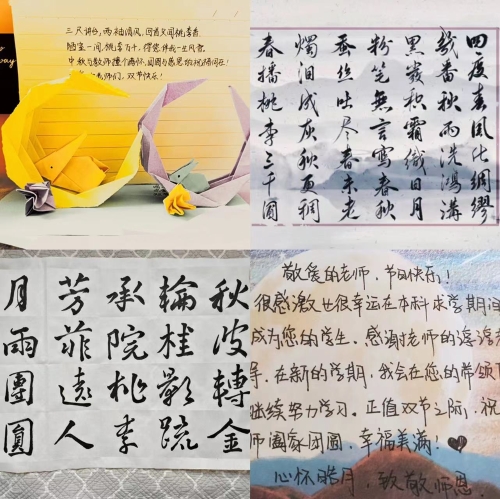 三尺讲台，两袖清风，回首又闻桃李香
陋室一间，桃李万千，得您伴我一生风景
中秋与教师撞个满怀，团圆与感恩的祝福同在！
老师们，双节快乐！
way
四度春风化绸缪
幾番秋雨洗鴻溝
黑发积霜織日月
粉笔無言寫春秋
蚕丝吐尽春未老
燭泪成灰秋更稠
春播桃李三千圃
秋波轉金
輪桂影疏
承院桃李
芳菲遠人
月雨團圓
敬爱的老师，节日快乐！
很感激也很幸运在本科求学期间
成为您的学生。感谢老师的谆谆
导，在新的学期，我会在您的带领
继续努力学习。正值双节之际，祝
师阖家团圆，幸福美满！
心怀皓月，致敬师恩